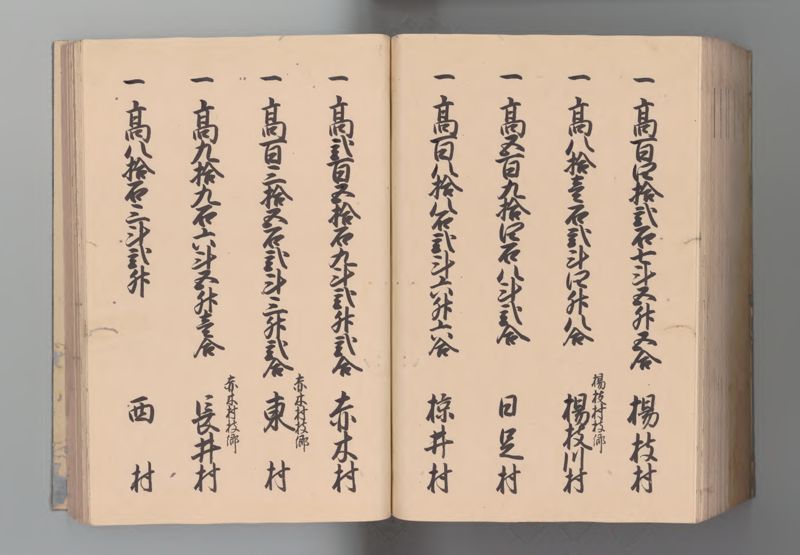 一 高百四拾弐石七斗五升五合 楊枝村
一 高八拾壱石弐斗四升八合 楊枝村枝郷 楊枝川村
一 高五百九拾四石八斗弐合 日足村
一 高百八拾八石弐斗六升六合 椋井村
一 高弐百五拾石九斗弐升弐合 赤木村
一 高百三拾五石弐斗三升弐合 赤木村枝郷 東村
一 高九拾九石六斗五升壱合 赤木村枝郷 長井村
一 高八拾石三斗弐升 西村